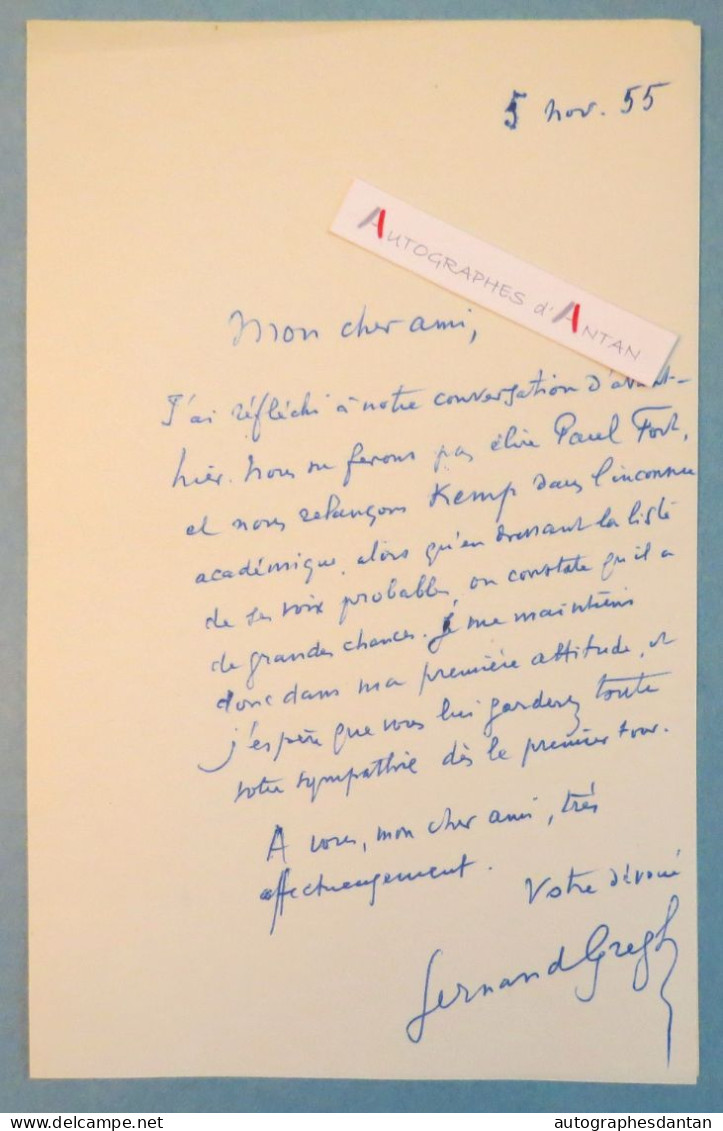 5 nov. 55
AUTOGRAPHES d'ANTAN
Mon cher ami,
J'ai réfléchi à notre conversation d'avant-
hier. Nous ne ferons pas élire Paul Fort,
et nous relançons Kemp dans l'inconnu
académique, alors qu'en dressant la liste
de ses voix probables, on constate qu'il a
de grandes chances. Je me maintiens
donc dans ma première attitude, et
j'espère que vous lui garderez toute
votre sympathie dès le premier tour.
A vous, mon cher ami, très
affectueusement.
Votre dévoué
Fernand Gregh
delcampe.net
autographesdantan